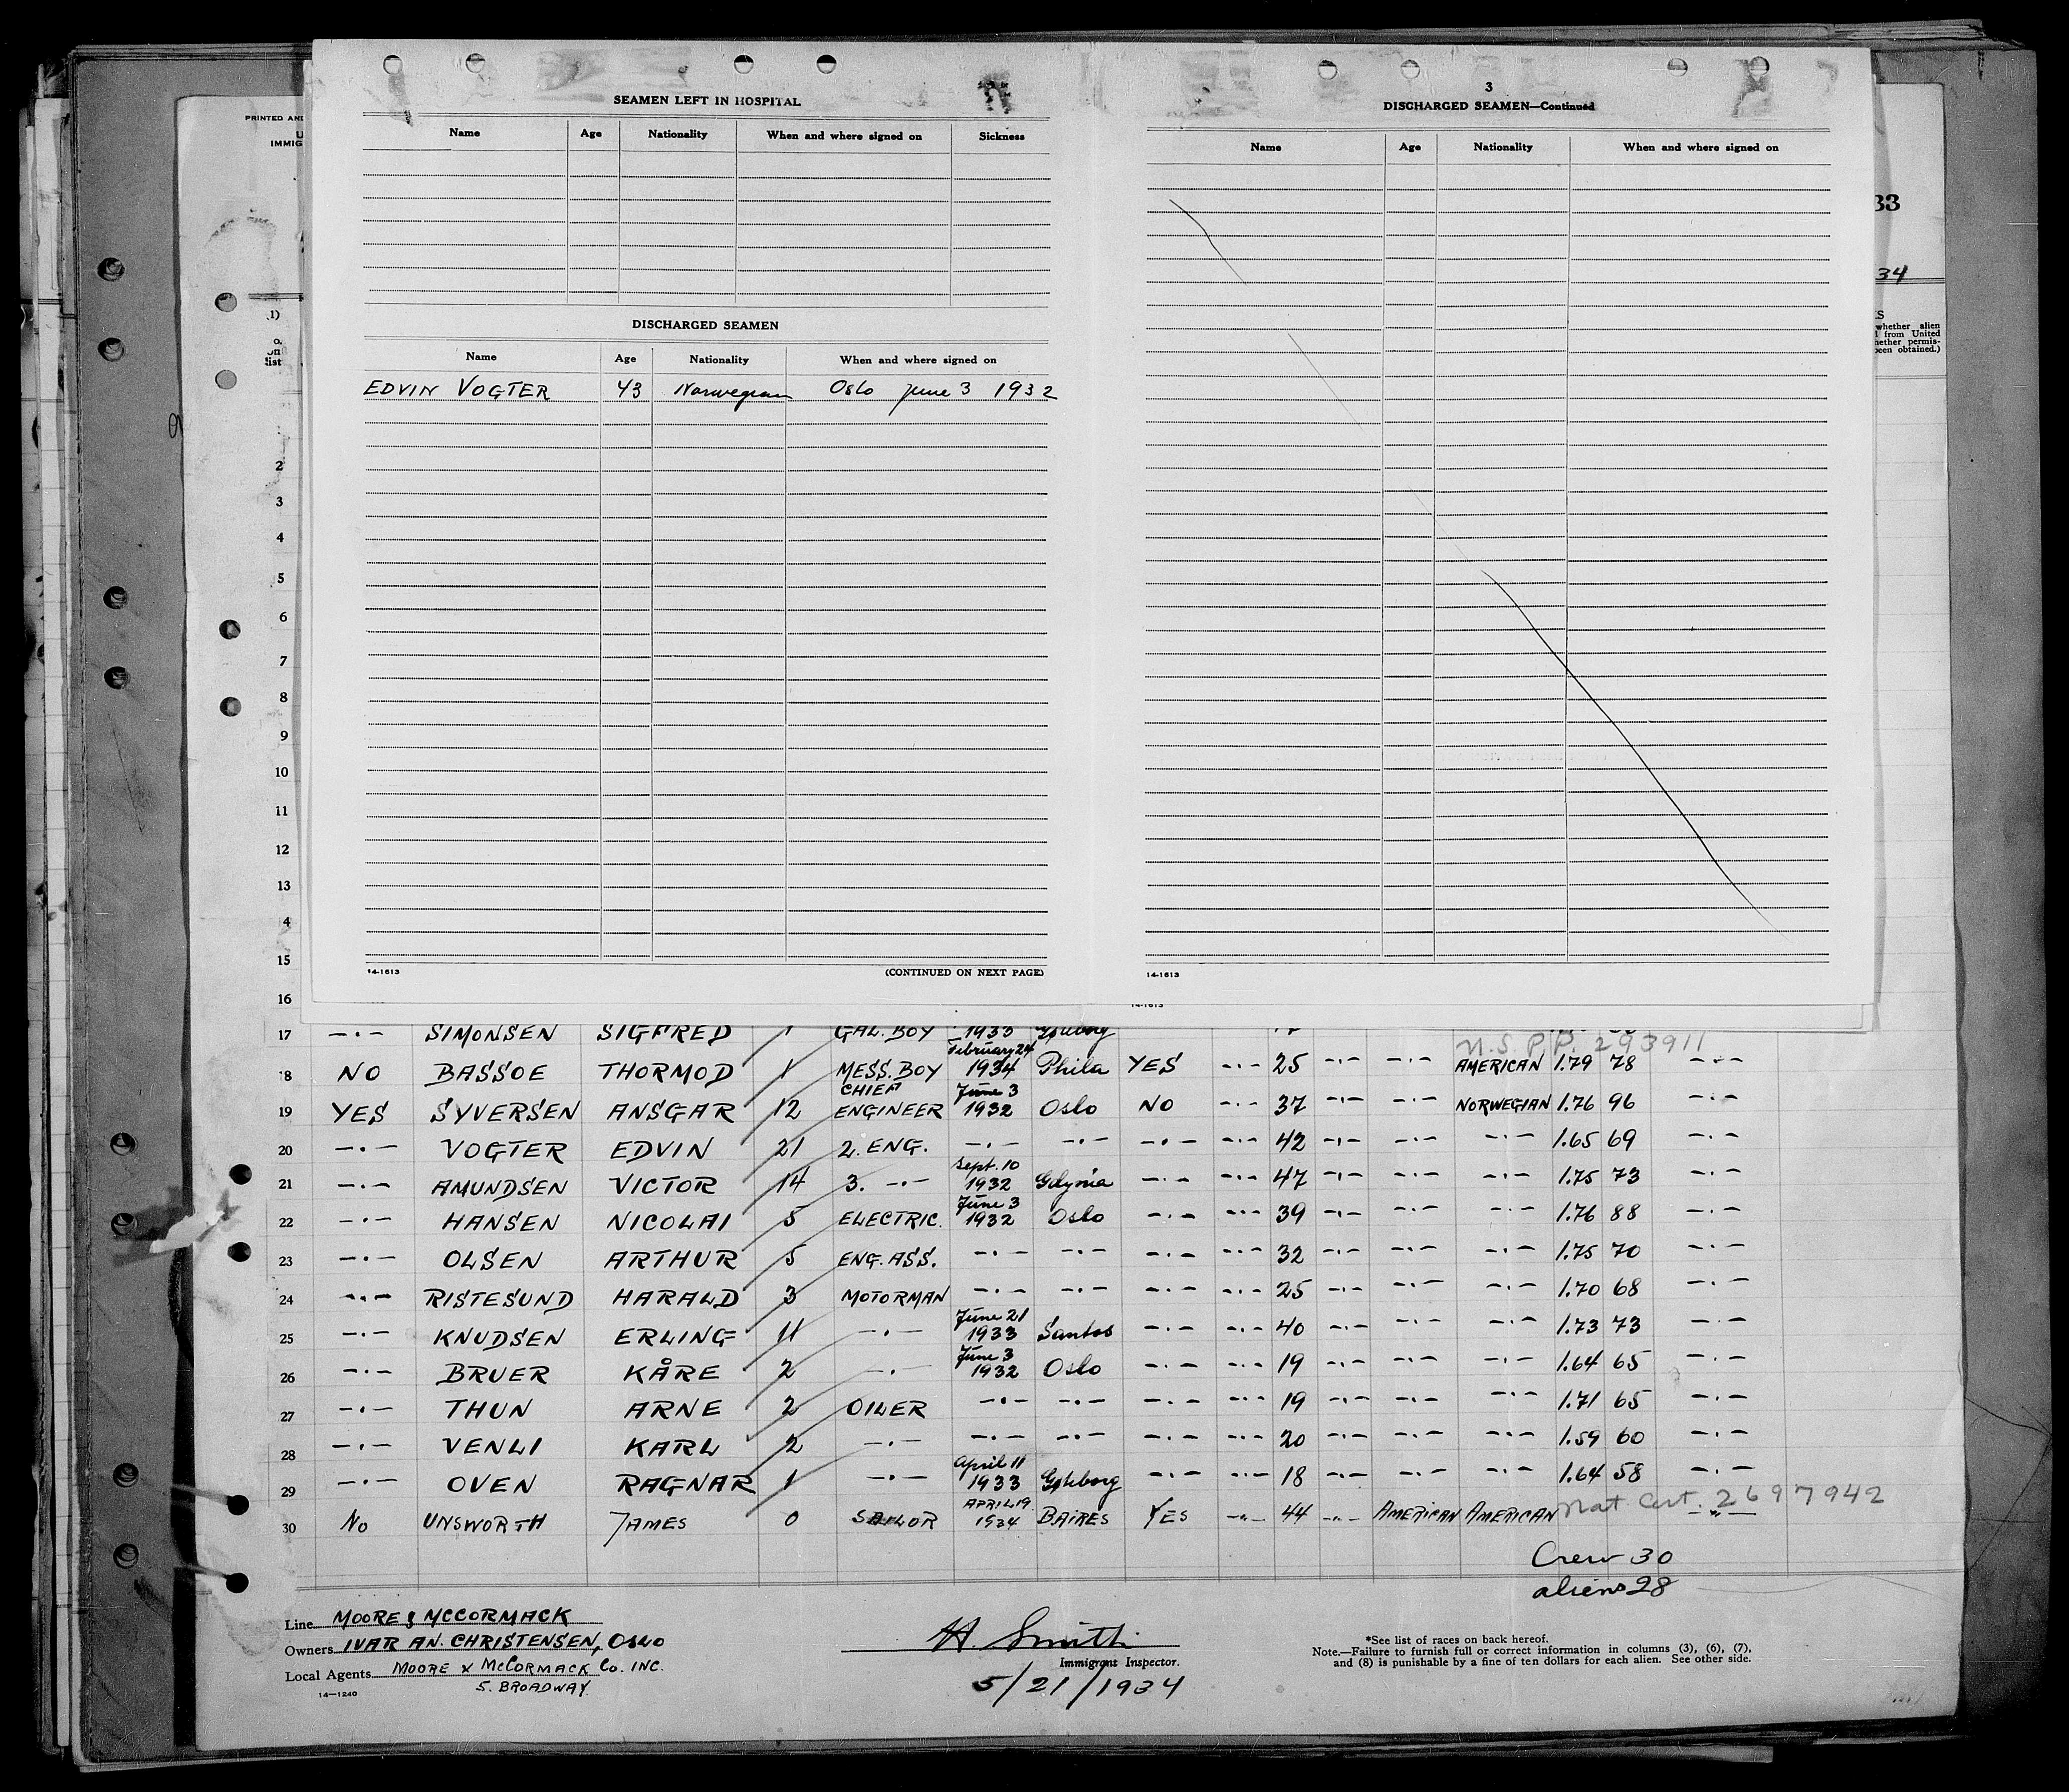 PRINTED AND
U
IMMIG
33
34
1)
on
list
S
whether alien
from United
whether permis-
been obtained.)
SEAMEN LEFT IN HOSPITAL
Name Age Nationality When and where signed on Sickness
DISCHARGED SEAMEN
Name Age Nationality When and where signed on
EDVIN VOGTER 43 Norwegian Oslo June 3 1932
14-1613 (CONTINUED ON NEXT PAGE)
3
DISCHARGED SEAMEN—Continued
Name Age Nationality When and where signed on
14-1613
14-1613
2
3
4
5
6
7
8
9
10
11
12
13
4
15
16
17 —·— SIMONSEN SIGFRED 1 GAL. BOY 1933 Göteborg
U.S. P.P. 293911
18 NO BASSOE THORMOD 1 MESS. BOY February 24 1934 Phila YES —·— 25 —·— —·— AMERICAN 1.79 78 —·—
19 YES SYVERSEN ANSGAR 12 CHIEF ENGINEER June 3 1932 Oslo NO —·— 37 —·— —·— NORWEGIAN 1.76 96 —·—
20 —·— VOGTER EDVIN 21 2. ENG. —·— —·— —·— —·— 42 —·— —·— —·— 1.65 69 —·—
21 —·— AMUNDSEN VICTOR 14 3. —·— Sept. 10 1932 Gdynia —·— —·— 47 —·— —·— —·— 1.75 73 —·—
22 —·— HANSEN NICOLAI 5 ELECTRIC. June 3 1932 Oslo —·— —·— 39 —·— —·— —·— 1.76 88 —·—
23 —·— OLSEN ARTHUR 5 ENG. ASS. —·— —·— —·— —·— 32 —·— —·— —·— 1.75 70 —·—
24 —·— RISTESUND HARALD 3 MOTORMAN —·— —·— —·— —·— 25 —·— —·— —·— 1.70 68 —·—
25 —·— KNUDSEN ERLING 11 —·— June 21 1933 Santos —·— —·— 40 —·— —·— —·— 1.73 73 —·—
26 —·— BRUER KÅRE 2 —·— June 3 1932 Oslo —·— —·— 19 —·— —·— —·— 1.64 65 —·—
27 —·— THUN ARNE 2 OILER —·— —·— —·— —·— 19 —·— —·— —·— 1.71 65 —·—
28 —·— VENLI KARL 2 —·— —·— —·— —·— —·— 20 —·— —·— —·— 1.59 60 —·—
29 —·— OVEN RAGNAR 1 —·— April 11 1933 Göteborg —·— —·— 18 —·— —·— —·— 1.64 58 —·—
30 No UNSWORTH JAMES 0 SAILOR APRIL 19 1934 BAIRES YES —"— 44 —"— AMERICAN AMERICAN Nat. Cert. 2697942 —"—
Crew 30
aliens 28
Line MOORE & MCCORMACK
Owners IVAR AN. CHRISTENSEN, OSLO
Local Agents MOORE & MCCORMACK Co. INC.
5. BROADWAY.
14—1240
H. Smith
Immigrant Inspector.
5/21/1934
*See list of races on back hereof.
Note.—Failure to furnish full or correct information in columns (3), (6), (7),
and (8) is punishable by a fine of ten dollars for each alien. See other side.